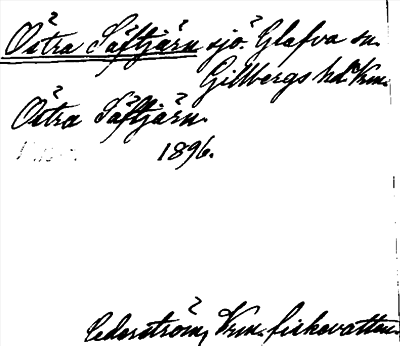 Östra Säftjärn sjö. Glafva sn.
Gillbergs hd. Vrm.
Östra Säftjärn.
1896.
Cederström, Vrm. fiskevatten.